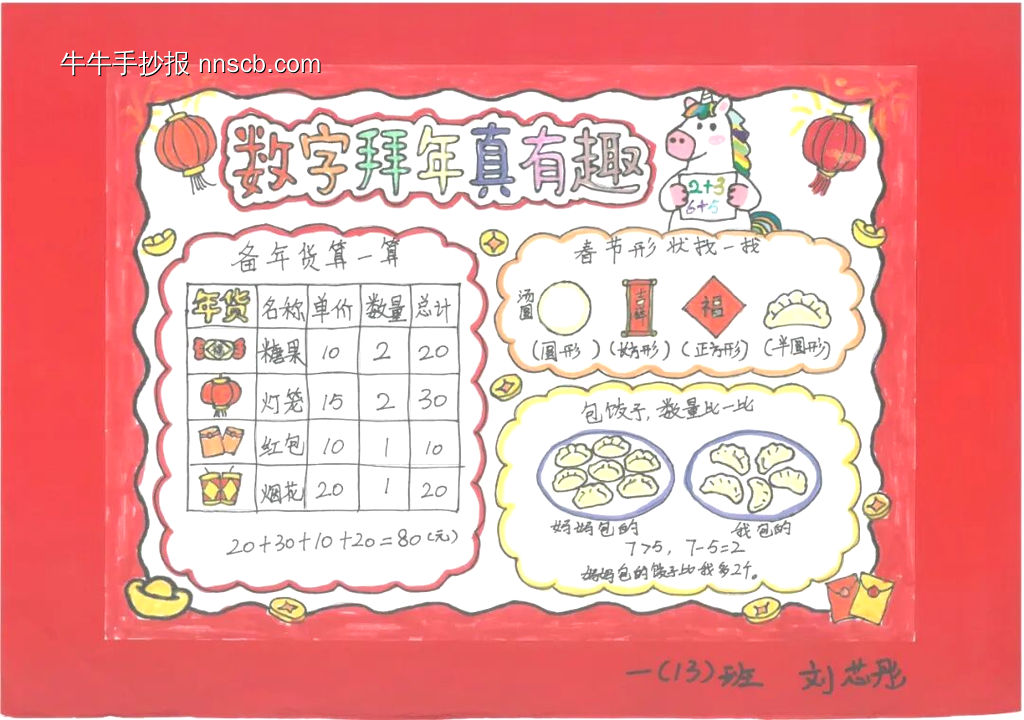 牛牛手抄报 nnscb.com
数字拜年真有趣
2+3
6+5
备年货算一算
年货 名称 单价 数量 总计
糖果 10 2 20
灯笼 15 2 30
红包 10 1 10
烟花 20 1 20
20+30+10+20=80(元)
春节形状找一找
汤圆
吉祥
福
(圆形) (长方形) (正方形) (半圆形)
包饺子,数量比一比
妈妈包的 我包的
7>5, 7-5=2
妈妈包的饺子比我多2个。
一(13)班 刘芯彤